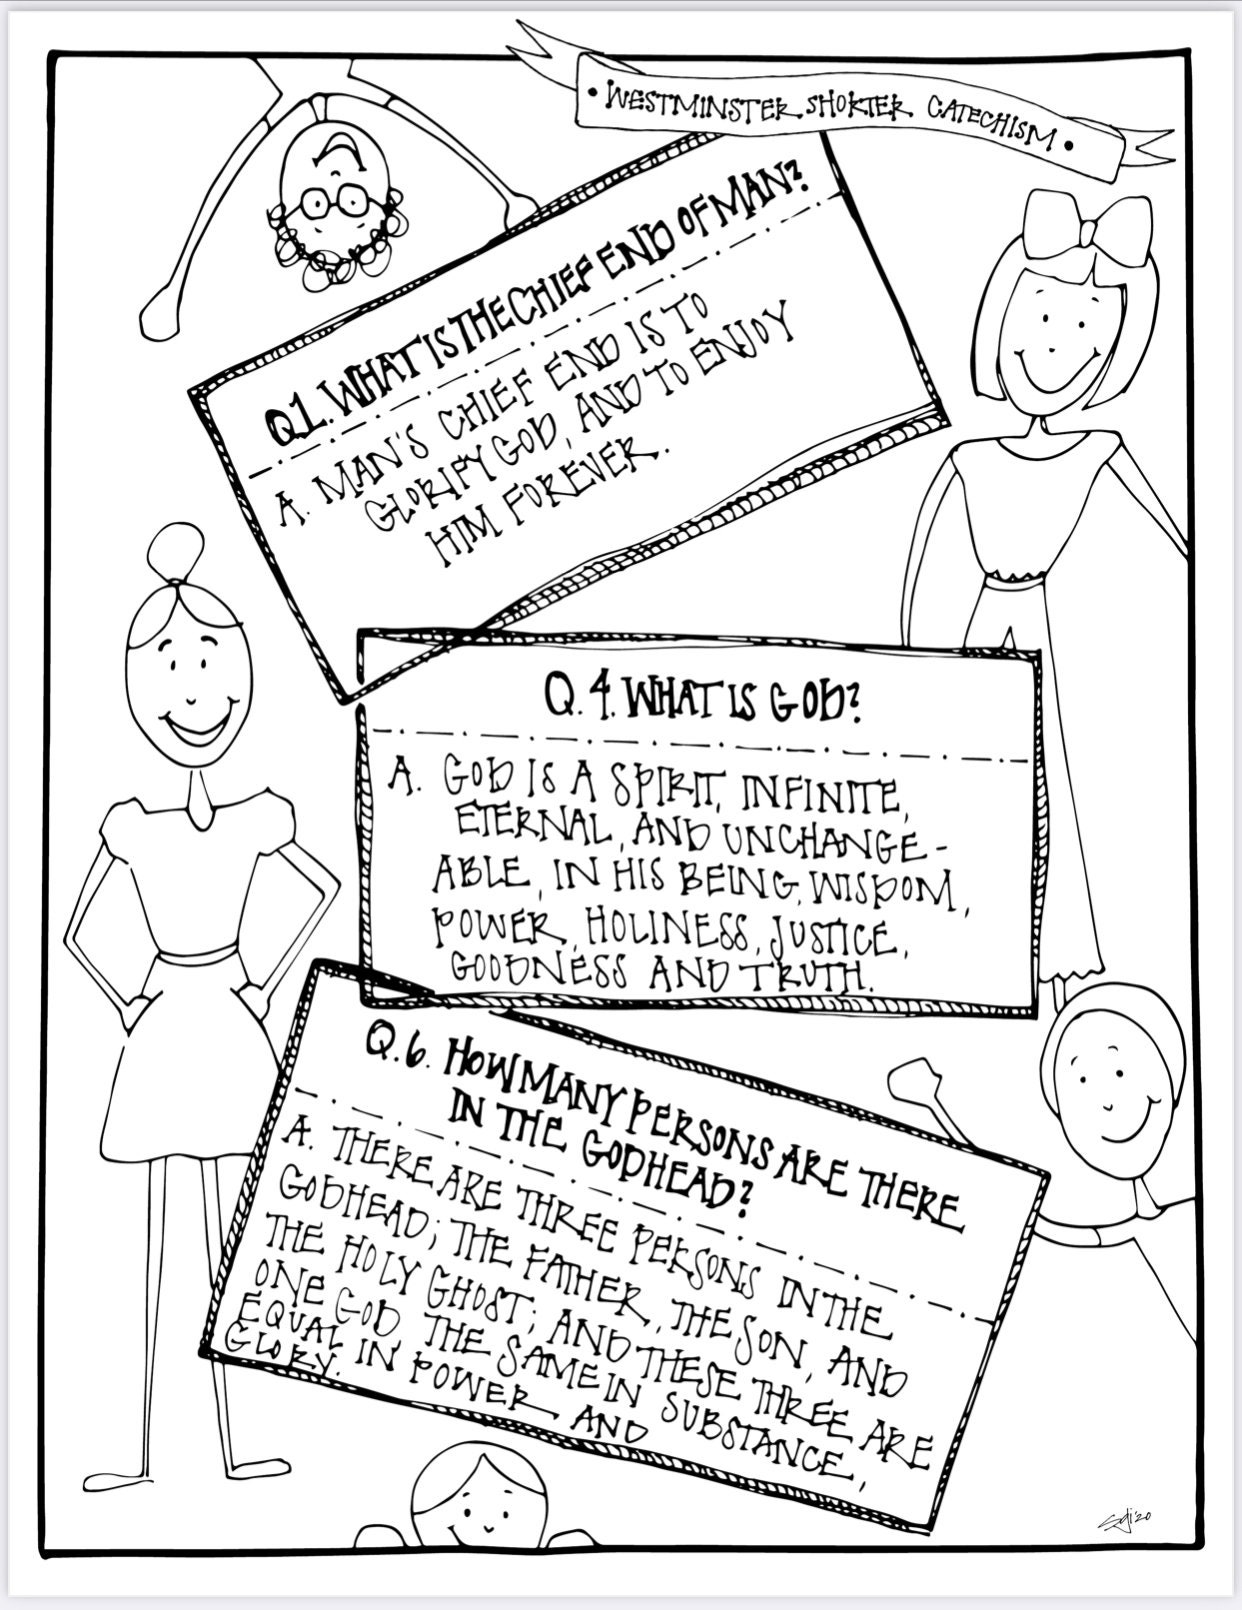 • WESTMINSTER SHORTER CATECHISM •
Q1. WHAT IS THE CHIEF END OF MAN?
A. MAN'S CHIEF END IS TO
GLORIFY GOD, AND TO ENJOY
HIM FOREVER.
Q. 4. WHAT IS GOD?
A. GOD IS A SPIRIT, INFINITE,
ETERNAL, AND UNCHANGE-
ABLE, IN HIS BEING, WISDOM,
POWER, HOLINESS, JUSTICE,
GOODNESS AND TRUTH.
Q. 6. HOW MANY PERSONS ARE THERE
IN THE GODHEAD?
A. THERE ARE THREE PERSONS IN THE
GODHEAD; THE FATHER, THE SON, AND
THE HOLY GHOST; AND THESE THREE ARE
ONE GOD, THE SAME IN SUBSTANCE,
EQUAL IN POWER AND
GLORY.